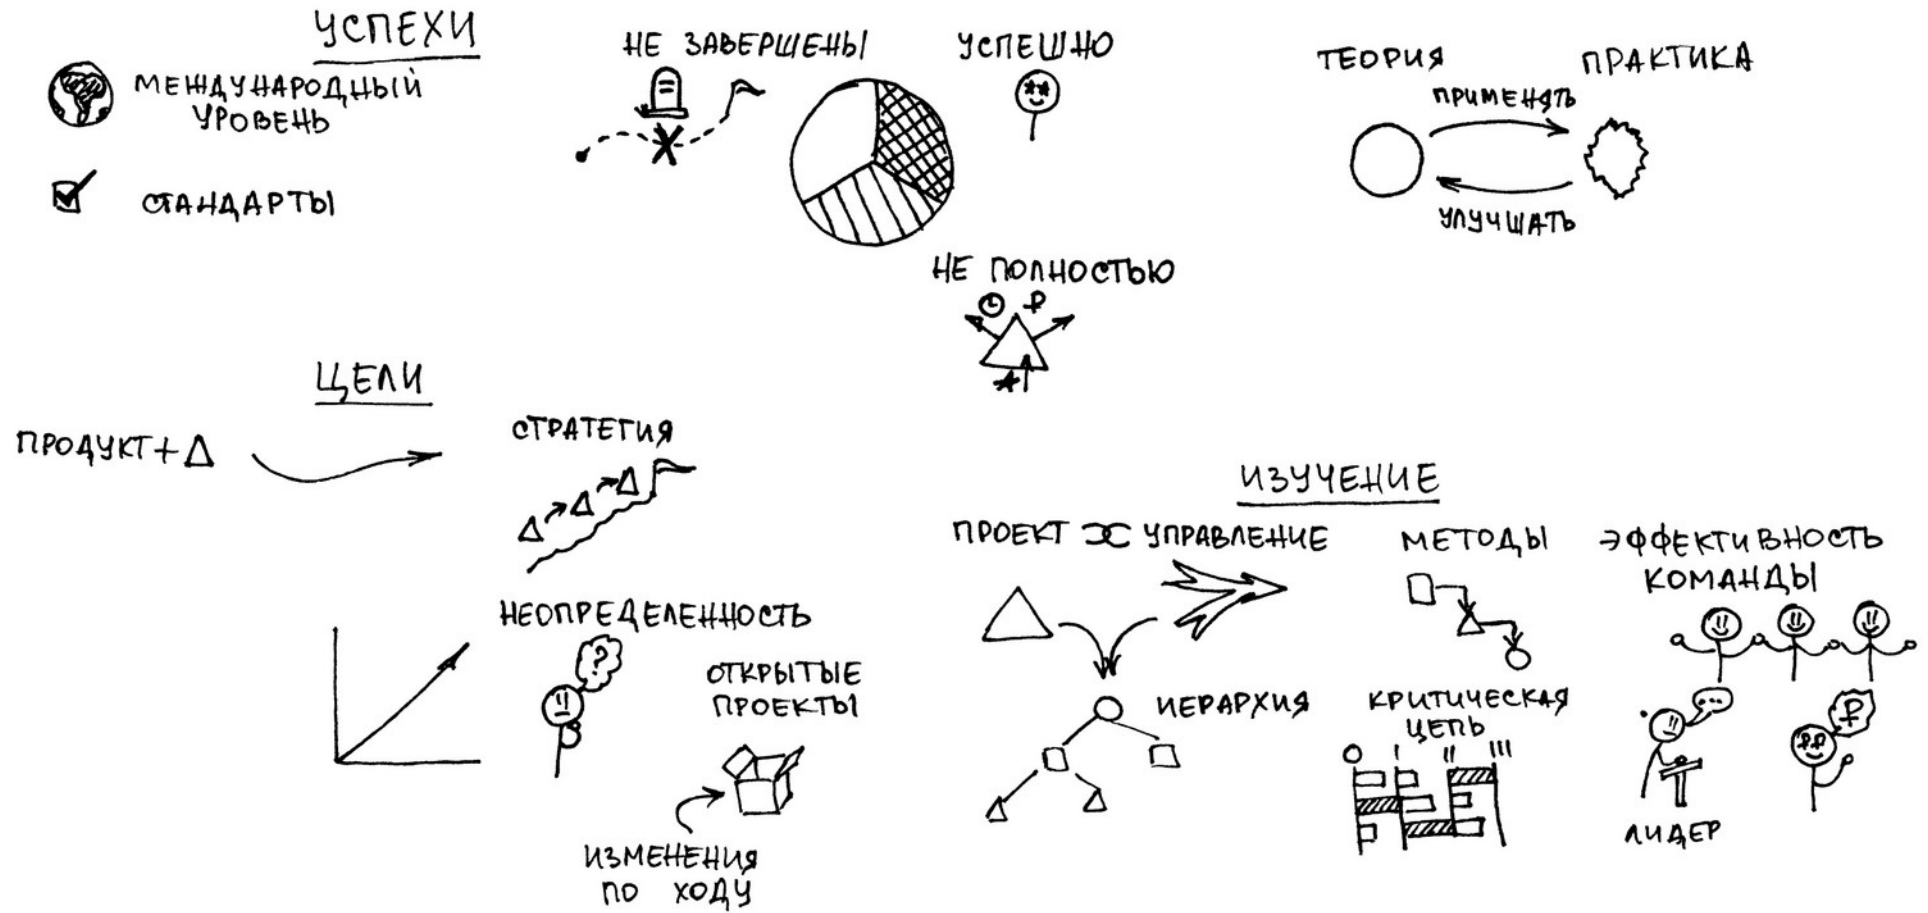 УСПЕХИ
МЕЖДУНАРОДНЫЙ
УРОВЕНЬ
СТАНДАРТЫ
НЕ ЗАВЕРШЕНЫ
УСПЕШНО
НЕ ПОЛНОСТЬЮ
₽
ТЕОРИЯ
ПРАКТИКА
ПРИМЕНЯТЬ
УЛУЧШАТЬ
ЦЕЛИ
ПРОДУКТ + Δ
СТРАТЕГИЯ
НЕОПРЕДЕЛЕННОСТЬ
?
ОТКРЫТЫЕ
ПРОЕКТЫ
ИЗМЕНЕНИЯ
ПО ХОДУ
ИЗУЧЕНИЕ
ПРОЕКТ УПРАВЛЕНИЕ
ИЕРАРХИЯ
МЕТОДЫ
КРИТИЧЕСКАЯ
ЦЕПЬ
I II III
ЭФФЕКТИВНОСТЬ
КОМАНДЫ
...
₽
₽₽
ЛИДЕР